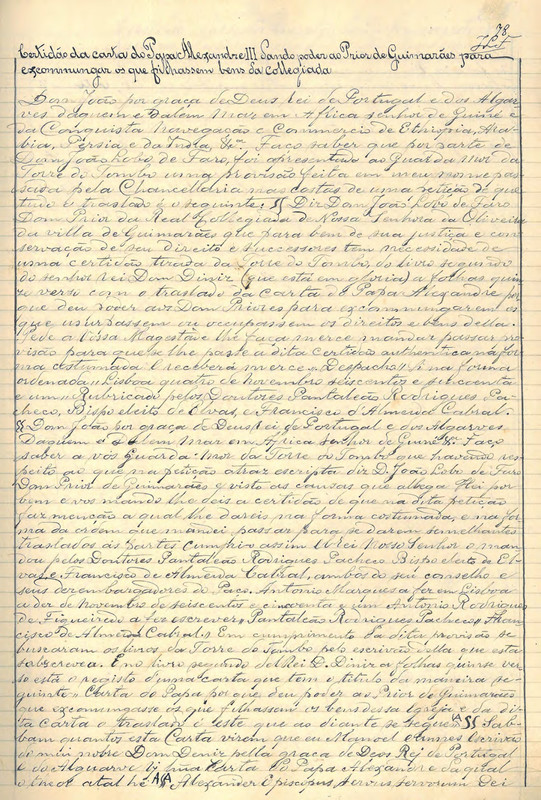 78
Certidão da carta do Papa Alexandre III dando poder ao Prior de Guimarães para
excommungar os que filhassem bens da collegiada
Dom João por graça de Deus, rei de Portugal e dos Algar-
ves daquem e dalem Mar em Africa senhor de Guiné e
da Conquista Navegação e Commercio de Ethiopia, Ara-
bia, Persia e da India, &ª. Faço saber que por parte de
Dom João Lobo de Faro, foi apresentada ao Guarda Mor da
Torre do Tombo uma provisão feita em meu nome pas-
sada pela Chancellaria nas costas de uma petição de que
tudo o traslado é o seguinte: §§ Diz Dom João Lobo de Faro
Dom Prior da Real Collegiada de Nossa Senhora da Oliveira
da villa de Guimarães que para bem de sua justiça e con-
servação de seu direito e successores tem necessidade de
uma certidão tirada da Torre do Tombo, do livro segundo
do senhor rei Dom Diniz (que está em gloria) a folhas quin-
ze verso com o traslado da carta do Papa Alexandre por
que deu poder aos Dom Priores para excommungarem os
que usurpassem ou occupassem os direitos e bens della.
Pede a Vossa Magestade lhe faça merce mandar passar pro-
visão para que se lhe passe a dita certidão authentica na for-
ma costumada E receberá merce = Despacho = P. na forma
ordenada = Lisboa quatro de novembro seiscentos e cincoenta
e um = Rubricado pelos Doutores Pantaleão Rodrigues Pa-
checo, Bispo eleito de Elvas, e Francisco d'Almeida Cabral.
§§ Dom João por graça de Deus rei de Portugal e dos Algarves
Daquem e Dalem Mar em Africa Senhor de Guiné &ª. Faço
saber a vós Guarda-Mor da Torre do Tombo que havendo res-
peito ao que na petição atraz escripta diz D. João Lobo de Faro
Dom Prior de Guimarães e visto as causas que allega Hei por
bem e vos mando lhe deis a certidão de que na dita petição
faz menção a qual lhe dareis, na forma costumada, e na for-
ma da ordem que mandei passar para se darem semelhantes
traslados ás partes Cumprio assim El Rei Nosso Senhor o man-
dou pelos Doutores Pantaleão Rodrigues Pacheco Bispo eleito de El-
vas e Francisco de Almeida Cabral, ambos do seu conselho e
seus dezembargadores do Paço. Antonio Marques a fez em Lisboa
a dez de novembro de seiscentos e cincoenta e um Antonio Rodrigues
de Figueiredo a fez escrever = Pantaleão Rodrigues Pacheco = Fran-
cisco de Almeida Cabral = Em cumprimento da dita provisão se
buscaram os livros da Torre do Tombo pelo escrivão della que esta
sobzcreveu. E no livro segundo del Rei D. Diniz a folhas quinse ver-
so está o registo d'uma carta que tem o titulo da maneira se-
guinte = Carta do Papa por que deu poder ao Prior de Guimarães
que excommungasse os que filhassem os bens dessa Igreja e da di-
ta carta o traslado é este que ao diante se segue: §§ Sab-
bam quantos esta Carta virem que eu Manoel Eannes Escrivão
de mui nobre Dom Deniz pella graça de Deos Rej de Portugal
e do Algarve vj hũa Carta do Papa Alexandre
o theor atal hé Alexander Episcopus, servus servorum Dei